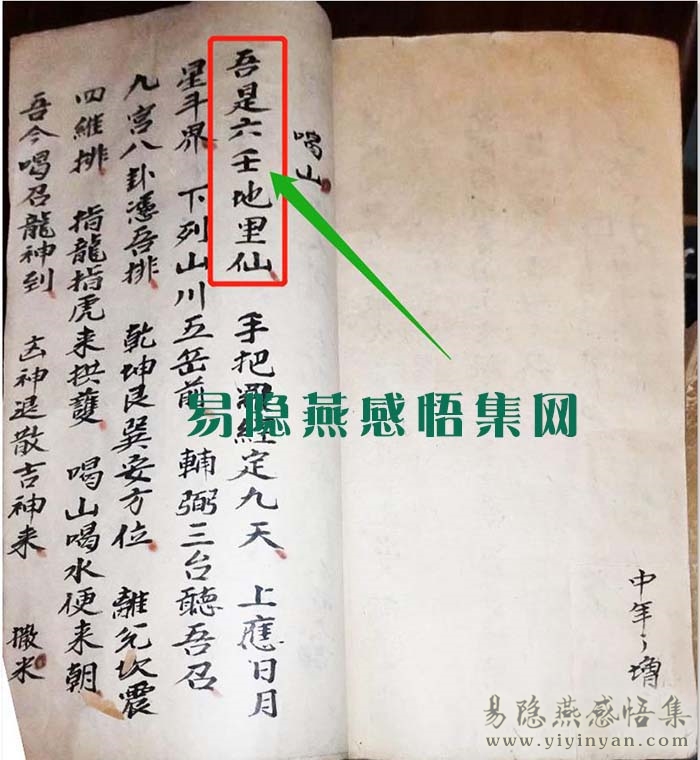 中年々增
喝山
吾是六壬地里仙 手把羅經定九天 上應日月
星斗界 下列山川五岳前 輔弼三台聽吾召
九宮八卦憑吾排 乾坤艮巽安方位 離兌坎震
四維排 指龍指虎来拱護 喝山喝水便来朝
吾今喝召龍神到 凶神退散吉神来 撒米
易隐燕感悟集网
易隐燕感悟集
www.yiyinyan.com